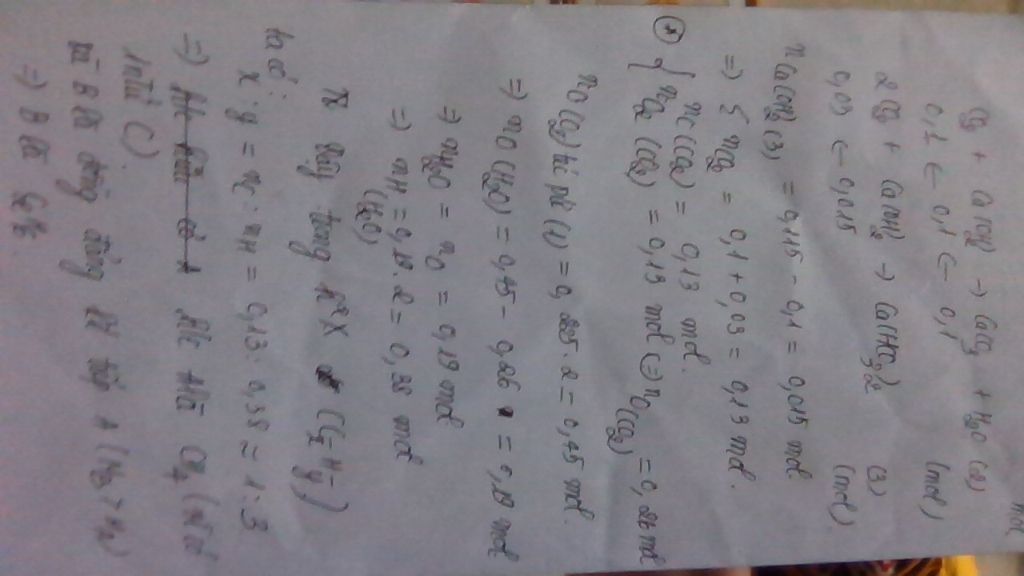 mol
CO2 + Ca(OH)2 → CaCO3 + H2O (2)
0,1 ← 0,1 ← 0,1 (mol)
2CO2 + Ca(OH)2 → Ca(HCO3)2 (3)
0,03 ← 0,015 (mol)
n Ca(OH)2 (3) = 0,115 - 0,1 = 0,015 mol
=> Σ nCO2 = 0,1 + 0,03 = 0,13 mol.
(*) { nC (CO2) = 0,13 mol.
nCO2 (CO2) = 0,13 mol (=) nO (CO2) = 0,26 mol
nO (O2) pứ (1) = 0,225 . 2 = 0,45 mol.
=> nO (H2O) = 0,45 - 0,26 = 0,19 mol
=> nH2O = nO = 0,19 mol
=> nH (H2O) = 0,19 . 2 = 0,38 mol
Vậy trong h² X (CxHy)
ta có:
x : y = nC : nH = 0,13 : 0,38 ≈ 1 : 3
=> A là CH4 (vì có
1 ntử C)
mà B là đồng đẳng
=> B là C2H6.